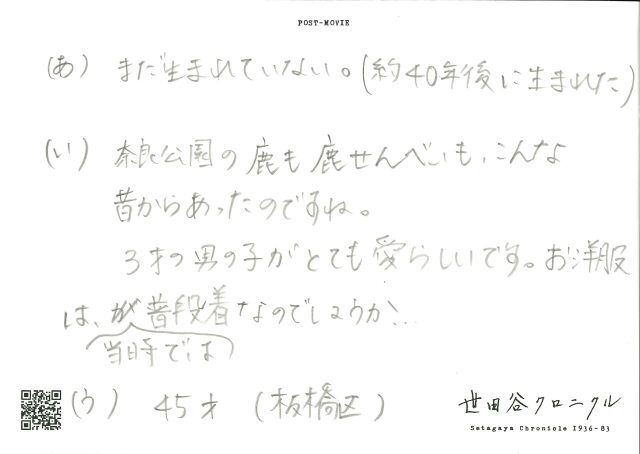 POST-MOVIE
(あ) まだ生まれていない。(約40年後に生まれた)
(い) 奈良公園の鹿も鹿せんべいも、こんな
昔からあったのですね。
3才の男の子がとても愛らしいです。お洋服
は、が普段着なのでしょうか、…
(当時では)
(う) 45才 (板橋区)
世田谷クロニクル
Setagaya Chronicle 1936-83